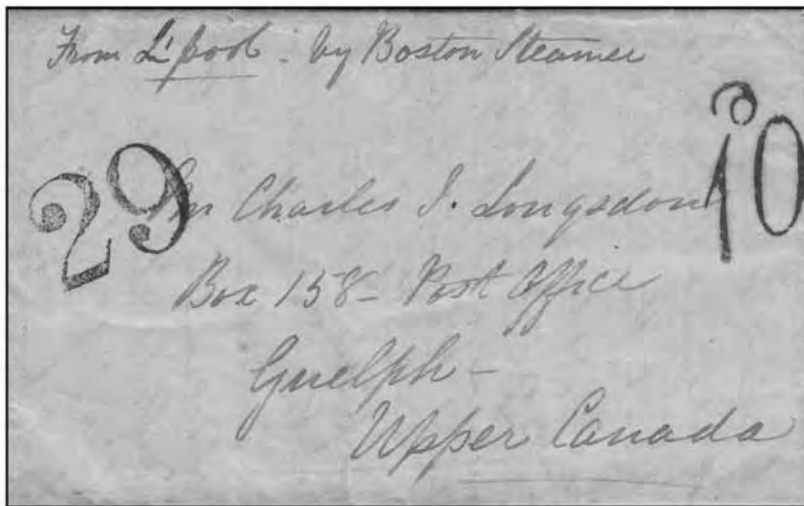 From L'pool - by Boston Steamer
29
10
Mr Charles I. Longsdon
Box 158 - Post Office
Guelph -
Upper Canada